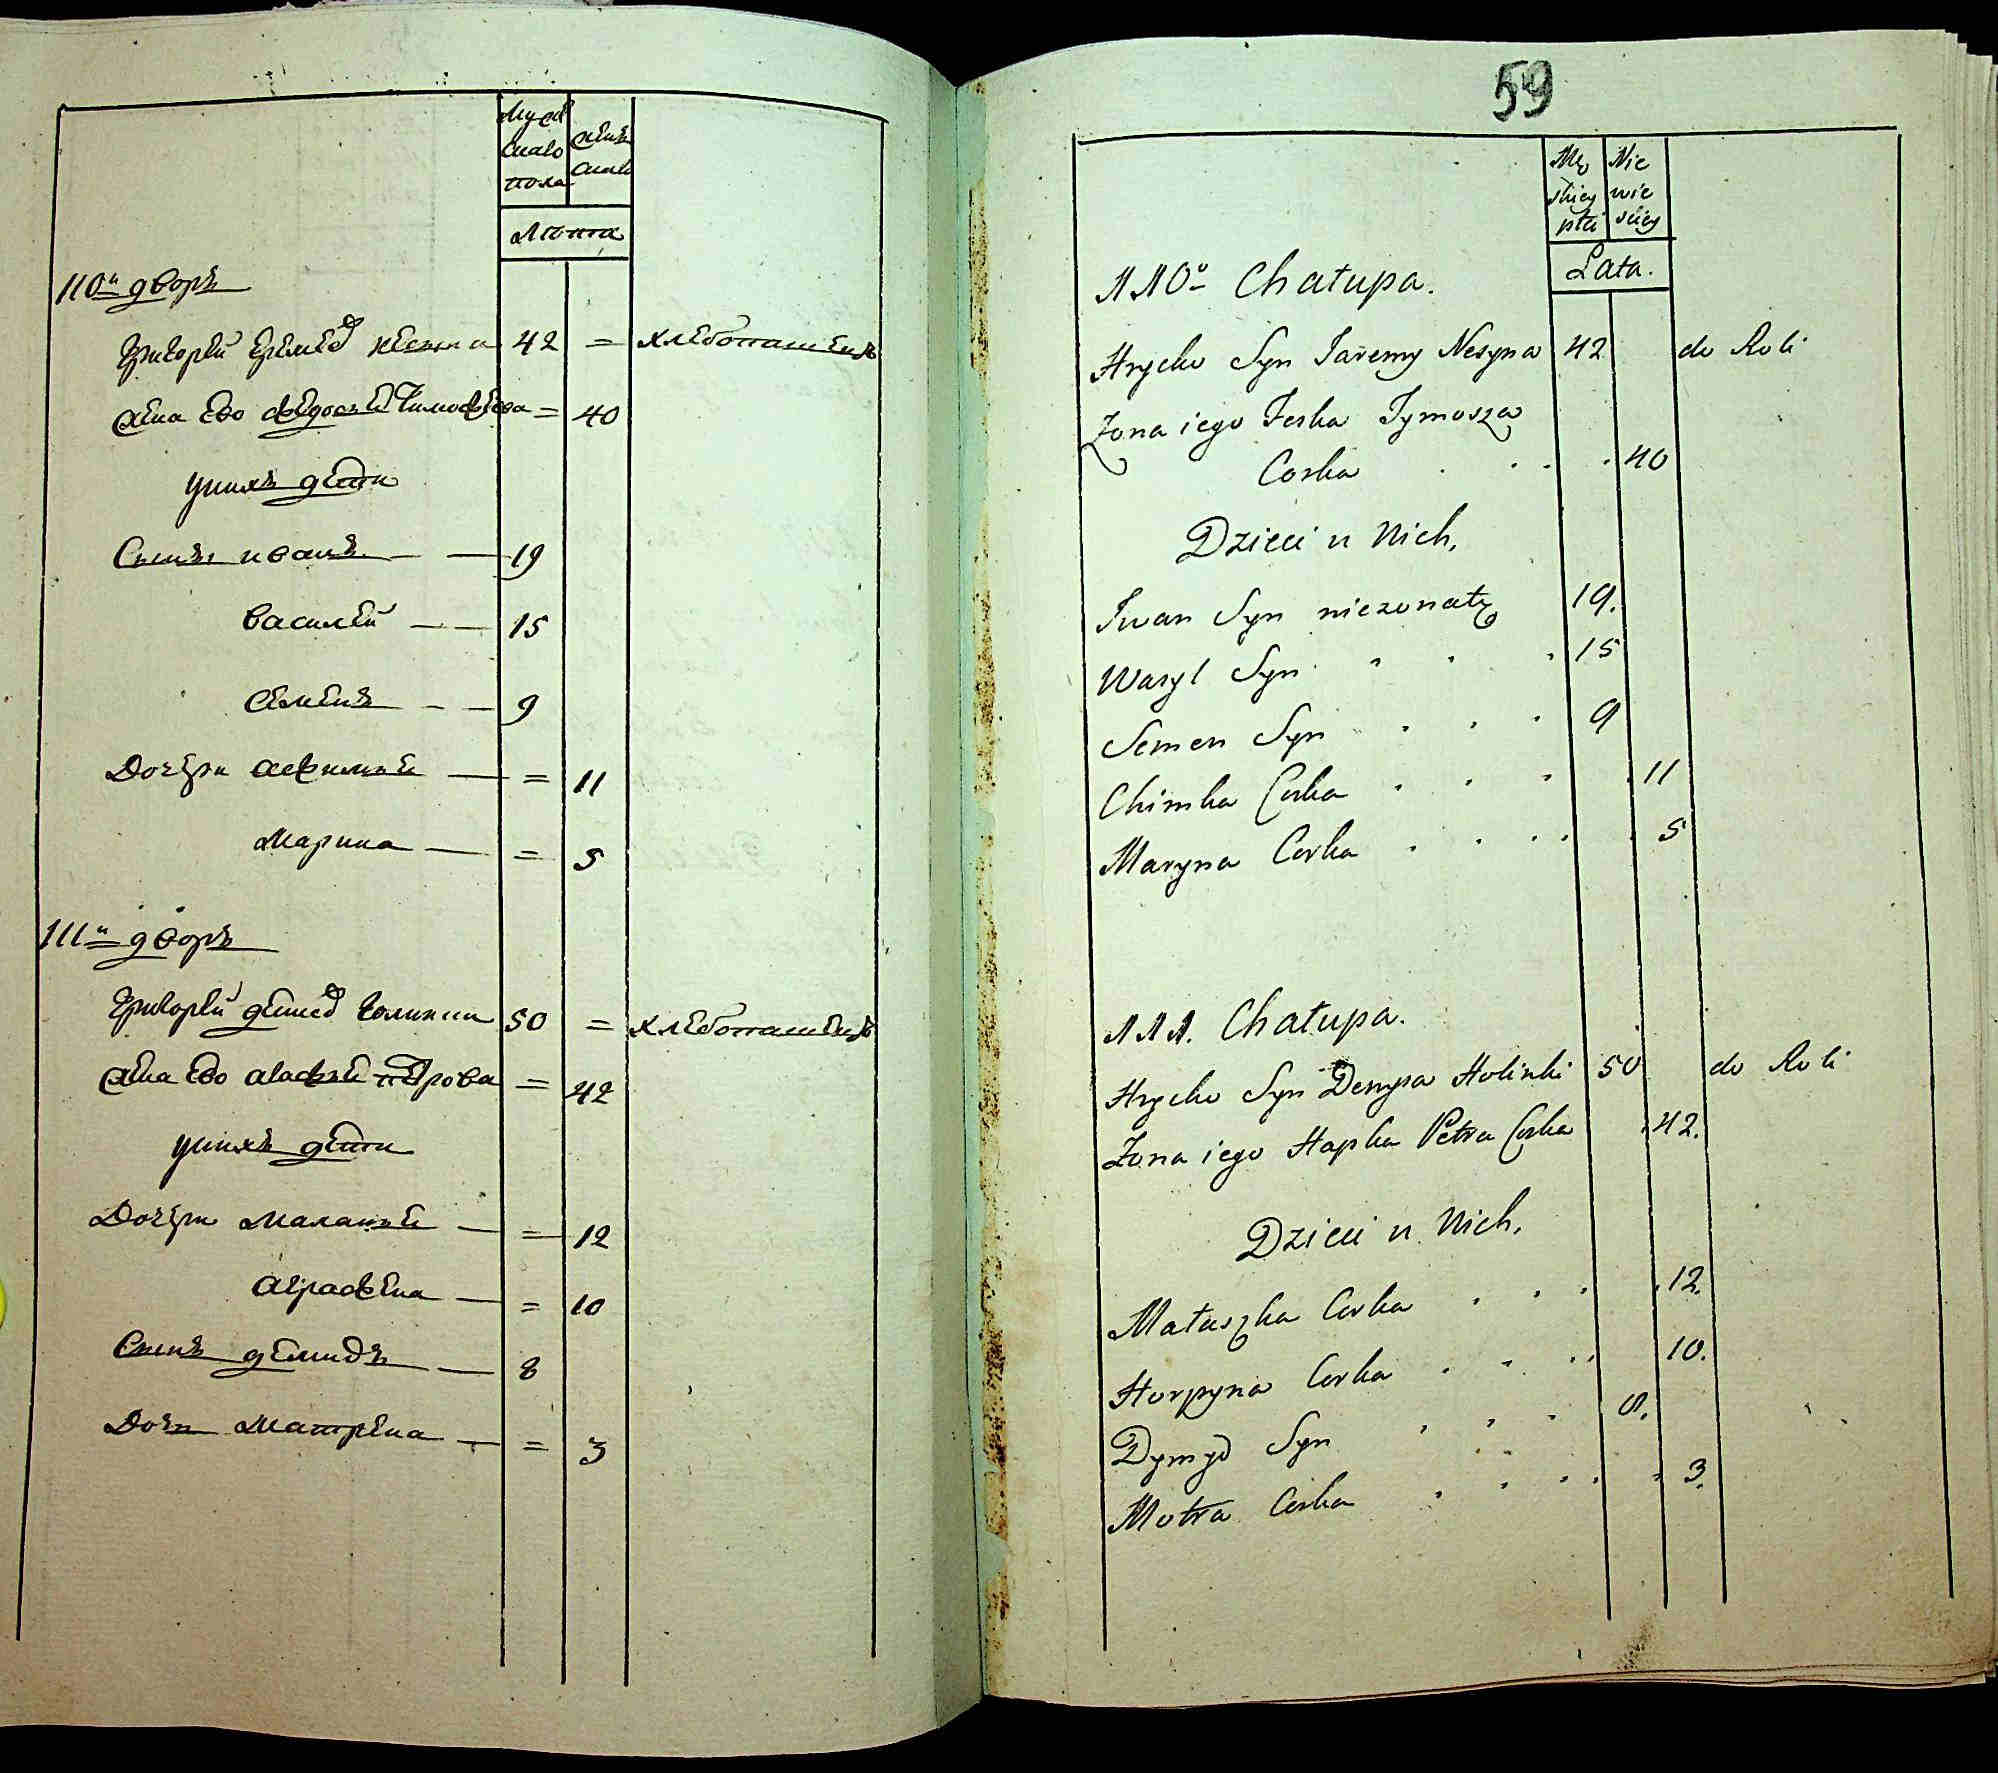 Муж
скаго
пола
жен
скаго
Лѣта
110й дворъ
Григорей Еремѣевъ Несина 42 = хлебопашецъ
жена Ево Федосья Тимофеева = 40
у нихъ дети
Сынъ иванъ — — 19
василей — — 15
Семенъ — — 9
Дочери Афимья — = 11
Марина — = 5
111й дворъ
Григорей денисовъ голинки 50 = хлебопашецъ
жена Ево агафья петрова = 42
у нихъ дети
Дочери Маланья — = 12
аграфена — = 10
Сынъ демидъ — 8
Дочь Матрена — = 3
59
Mę
skiey
płci
Nie
wie
sciey
Lata.
110o Chałupa.
Hrycko Syn Jaremy Nesyna 42 do Roli
Żona iego Feska Tymosza
Corka . . . . 40
Dzieci u Nich,
Iwan Syn niezonaty 19.
Wasyl Syn . . . 15
Semen Syn . . . 9
Chimka Corka . . . . 11
Maryna Corka . . . . . 5
111. Chałupa.
Hrycko Syn Denysa Holinki 50 do Roli
Żona iego Hapka Petra Corka . 42.
Dzieci u Nich,
Małaszka Corka . . . . 12.
Horpyna Corka . . . . 10.
Dymyd Syn . . . 8.
Motra Corka . . . . . 3.